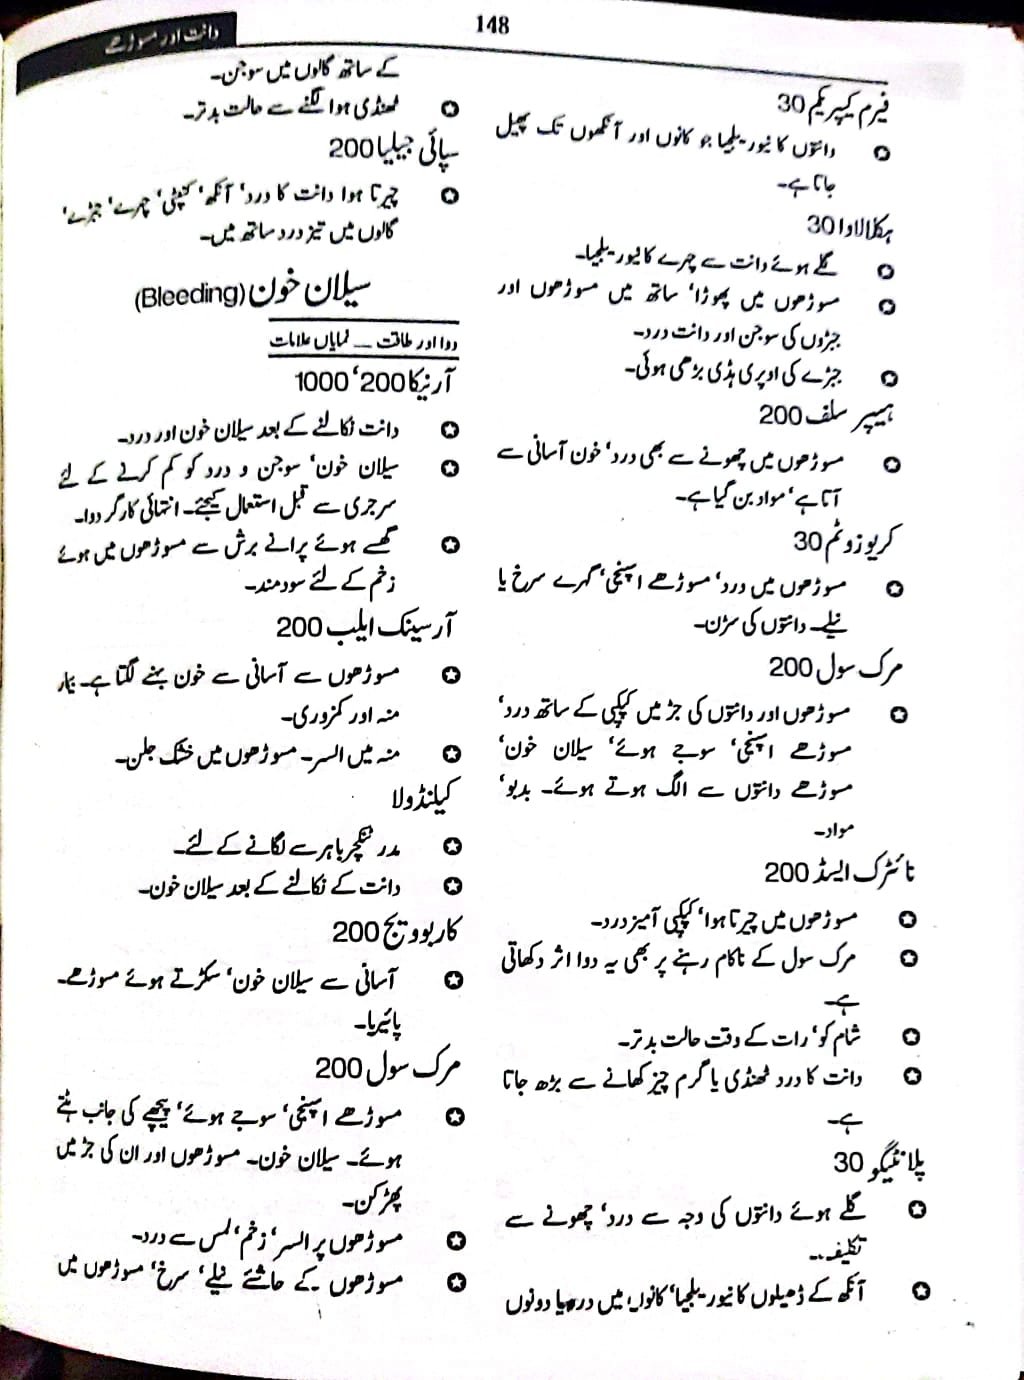 148
دانت اور مسوڑھے
فیرم کیپریکم 30
دانتوں کا نیوریلجیا جو کانوں اور آنکھوں تک پھیل
جاتا ہے۔
ہکلالاوا 30
گلے ہوئے دانت سے چہرے کا نیوریلجیا۔
مسوڑھوں میں پھوڑا‘ ساتھ میں مسوڑھوں اور
جبڑوں کی سوجن اور دانت درد۔
جبڑے کی اوپری ہڈی بڑھی ہوئی۔
ہیپر سلف 200
مسوڑھوں میں چھونے سے بھی درد‘ خون آسانی سے
آتا ہے‘ مواد بن گیا ہے۔
کریوزوٹم 30
مسوڑھوں میں درد‘ مسوڑھے اسپنجی‘ گہرے سرخ یا
نیلے۔ دانتوں کی سڑن۔
مرک سول 200
مسوڑھوں اور دانتوں کی جڑ میں کپکپی کے ساتھ درد‘
مسوڑھے اسپنجی‘ سوجے ہوئے‘ سیلان خون‘
مسوڑھے دانتوں سے الگ ہوتے ہوئے۔ بدبو‘
مواد۔
نائٹرک ایسڈ 200
مسوڑھوں میں چیرتا ہوا‘ کپکپی آمیز درد۔
مرک سول کے ناکام رہنے پر بھی یہ دوا اثر دکھاتی
ہے۔
شام کو‘ رات کے وقت حالت بدتر۔
دانت کا درد ٹھنڈی یا گرم چیز کھانے سے بڑھ جاتا
ہے۔
پلانٹیگو 30
گلے ہوئے دانتوں کی وجہ سے درد‘ چھونے سے
تکلیف۔۔
آنکھ کے ڈھیلوں کا نیوریلجیا‘ کانوں میں درد‘ یا دونوں
کے ساتھ گالوں میں سوجن۔
ٹھنڈی ہوا لگنے سے حالت بدتر۔
سپائی جیلیا 200
چیرتا ہوا دانت کا درد‘ آنکھ‘ کنپٹی‘ چہرے‘ جبڑے‘
گالوں میں تیز درد ساتھ میں۔
سیلان خون (Bleeding)
دوا اور طاقت ــ نمایاں علامات
آرنیکا 200‘ 1000
دانت نکالنے کے بعد سیلان خون اور درد۔
سیلان خون‘ سوجن و درد کو کم کرنے کے لئے
سرجری سے قبل استعمال کیجئے۔ انتہائی کارگر دوا۔
گھسے ہوئے پرانے برش سے مسوڑھوں میں ہوئے
زخم کے لئے سودمند۔
آرسینک ایلب 200
مسوڑھوں سے آسانی سے خون بہنے لگتا ہے۔ بیمار
منہ اور کمزوری۔
منہ میں السر۔ مسوڑھوں میں خشک جلن۔
کیلنڈولا
مدر ٹنکچر باہر سے لگانے کے لئے۔
دانت کے نکالنے کے بعد سیلان خون۔
کاربوویج 200
آسانی سے سیلان خون‘ سکڑتے ہوئے مسوڑھے۔
پائیریا۔
مرک سول 200
مسوڑھے اسپنجی‘ سوجے ہوئے‘ پیچھے کی جانب ہٹتے
ہوئے۔ سیلان خون۔ مسوڑھوں اور ان کی جڑ میں
پھڑکن۔
مسوڑھوں پر السر‘ زخم‘ لمس سے درد۔
مسوڑھوں کے حاشئے نیلے‘ سرخ‘ مسوڑھوں میں